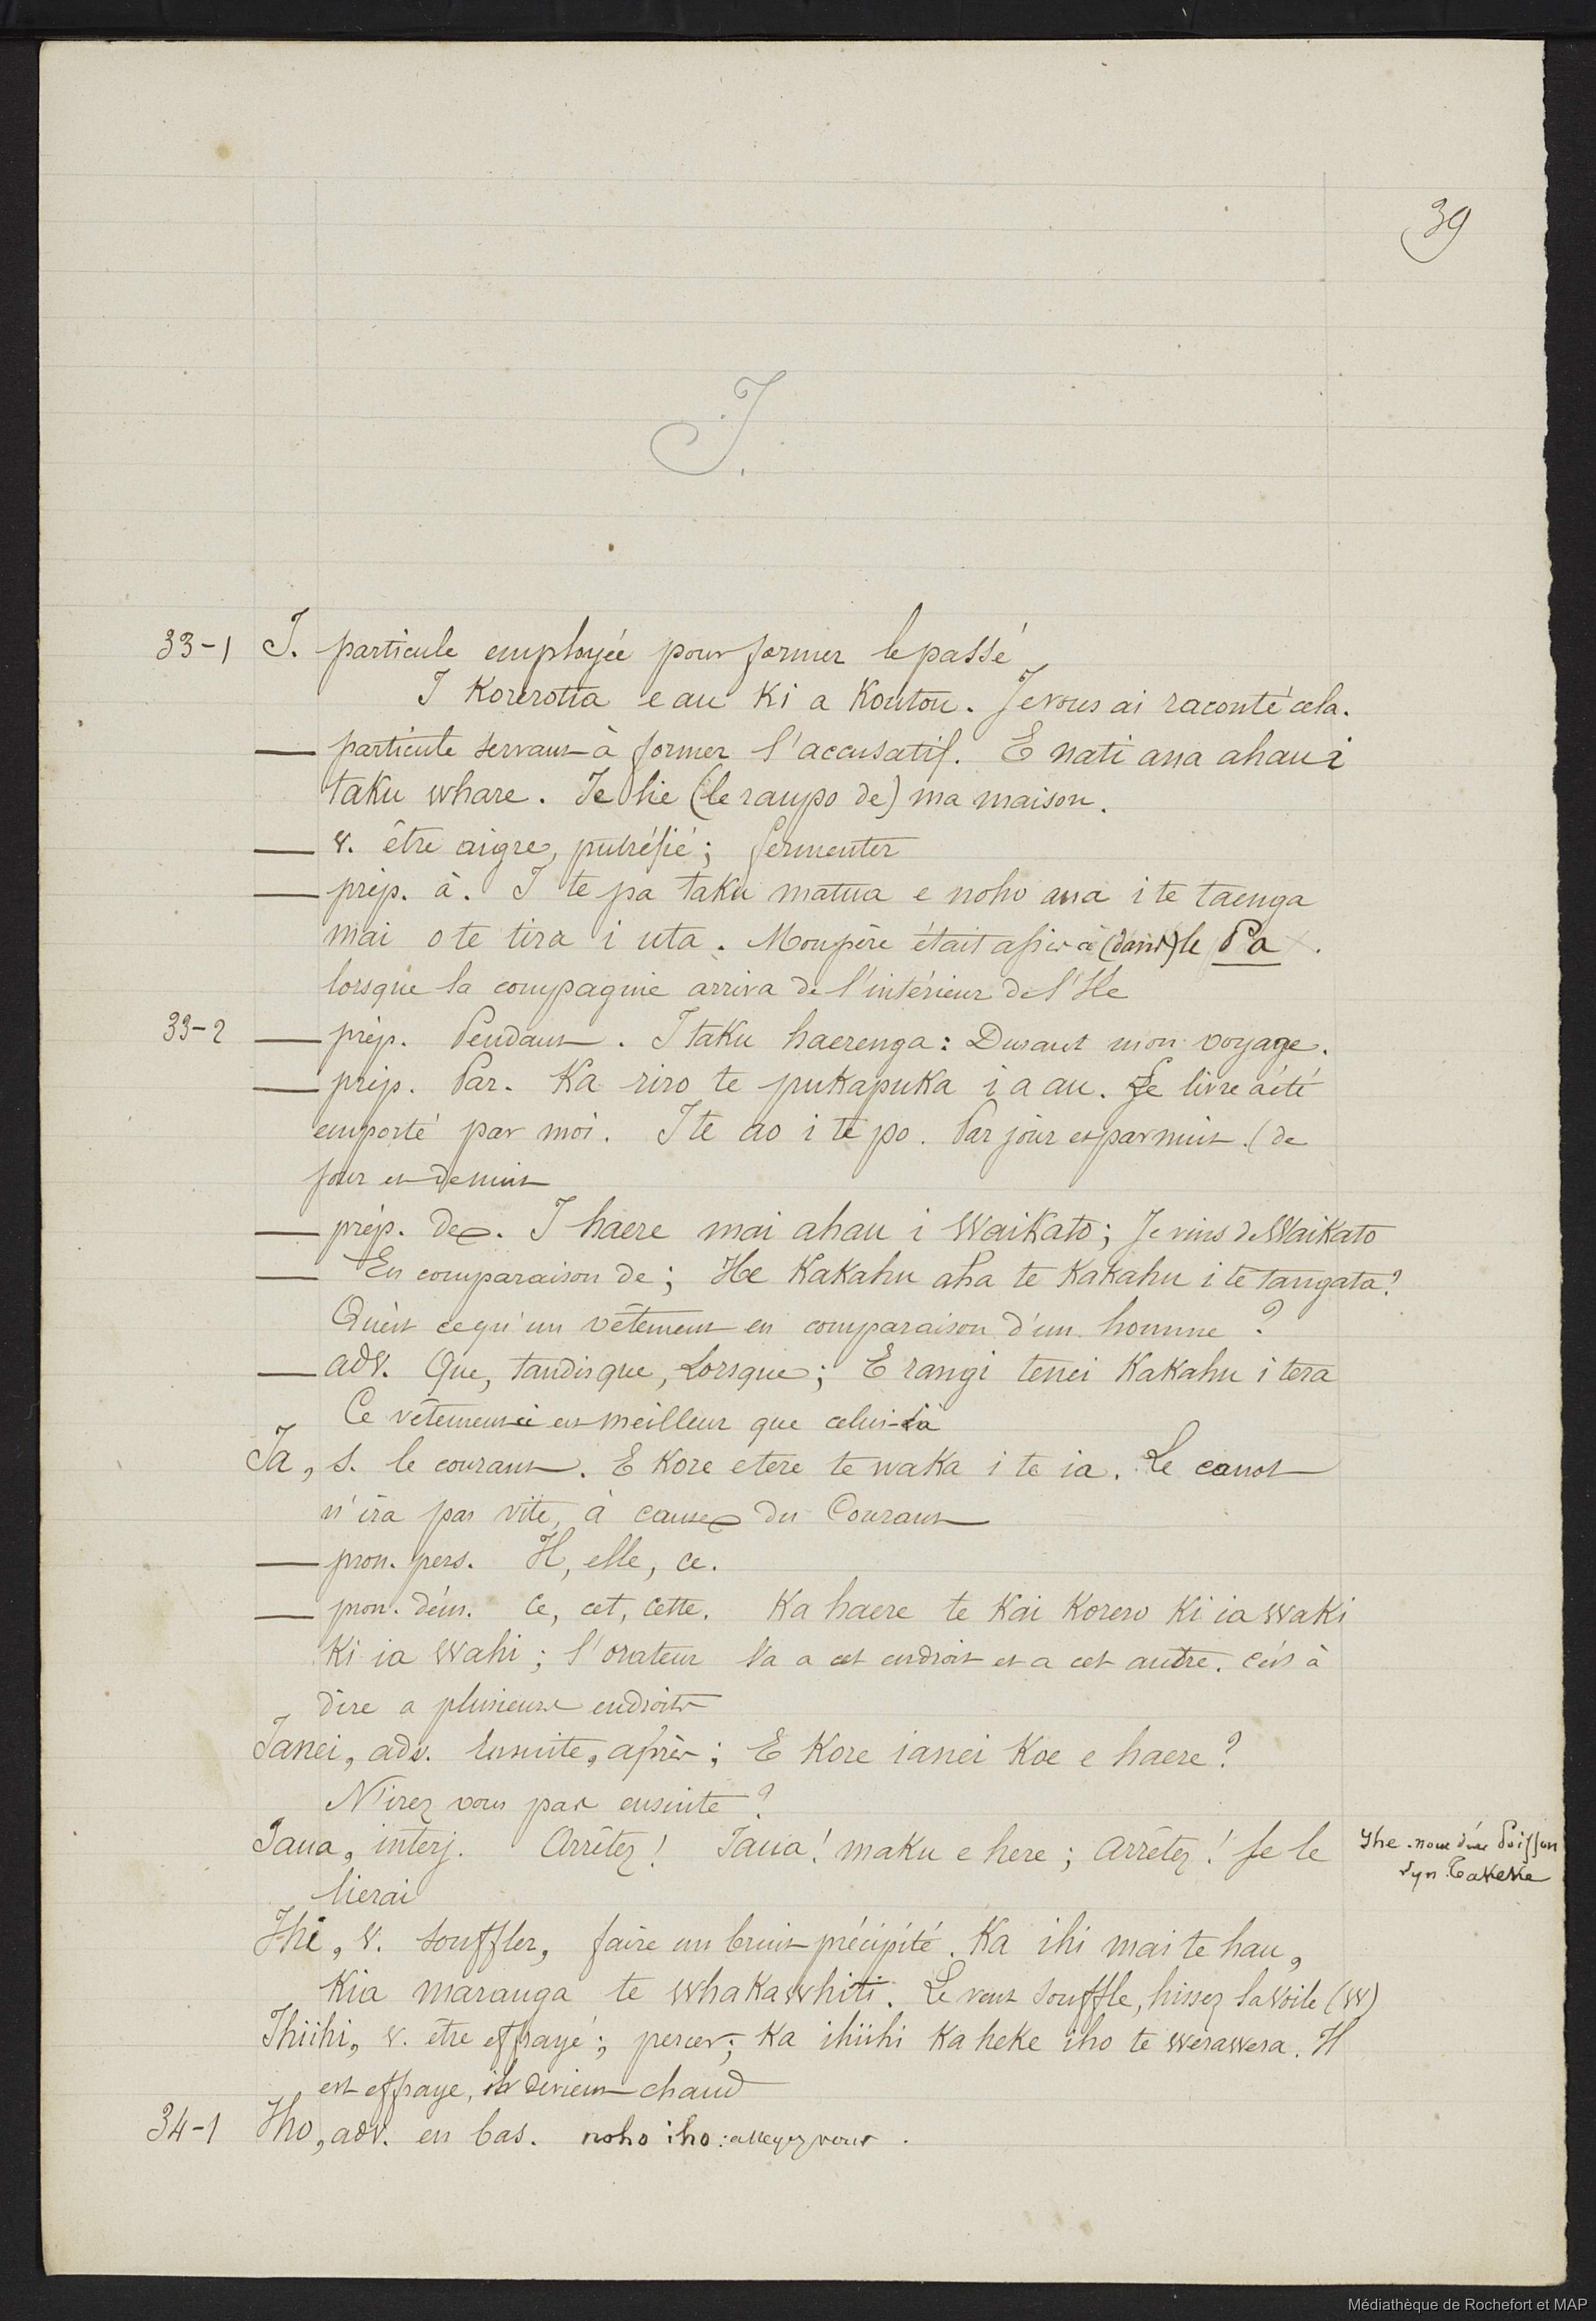 39
I.
33-1 I. particule employée pour former le passé
I Korerotia e au Ki a Koutou. Je vous ai raconté cela.
— particule servant à former l'accusatif. E nati ana ahau i
taku whare. Je lie (le raupo de) ma maison.
— v. être aigre, putréfié; fermenter
— prép. à. I te pa taku matua e noho ana i te taenga
mai o te tira i uta. Mon père était assis à (dans) le Pa x.
lorsque la compagnie arriva de l'intérieur de l'Ile
33-2 — prép. Pendant. I taku haerenga: Durant mon voyage.
— prép. Par. Ka riro te pukapuka i a au. Le livre a été
emporté par moi. I te ao i te po. Par jour et par nuit. (de
jour et de nuit
— prép. de. I haere mai ahau i Waikato; Je vins de Waikato
— En comparaison de; He Kakahu aha te Kakahu i te tangata?
Qu'est ce qu'un vêtement en comparaison d'un homme?
— adv. Que, tandis que, Lorsque; E rangi tenei Kakahu i tera
Ce vêtement ci est meilleur que celui-là
Ia, s. le courant. E Kore e tere te waka i te ia. Le canot
n'ira pas vite, à cause du Courant
— pron. pers. Il, elle, ce.
— pron. dém. Ce, cet, cette. Ka haere te Kai Korero Ki ia waki
Ki ia wahi; l'orateur va a cet endroit et a cet autre. c'es à
dire a plusieurs endroits
Ianei, adv. Ensuite, après; E Kore ianei Koe e haere?
N'irez vous pas ensuite?
Iaua, interj. Arrêtez! Iaua! maku e here; Arrêtez! Je le
lierai
Ihe. nom d'un Poisson
Syn. Takeke
Ihi, v. souffler, faire un bruit précipité. Ka ihi mai te hau,
Kia maranga te whakawhiti. Le vent souffle, hissez la voile (W)
Ihiihi, v. être effrayé; percer; Ka ihiihi Ka heke iho te werawera. Il
est effraye, il devient chaud
34-1 Iho, adv. en bas. noho iho: asseyez vous.
Médiathèque de Rochefort et MAP